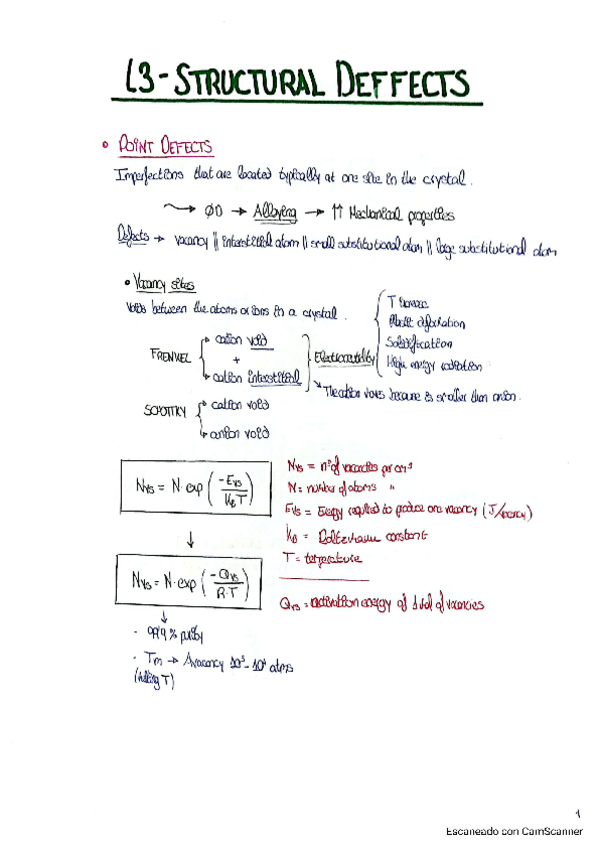 L3-STRUCTURAL DEFFECTS
• POINT DEFECTS
Imperfections that are located typically at one site in the crystal.
→ 0D → Alloying → ↑↑ Mechanical properties
Defects → vacancy || interstitial atom || small substitutional atom || large substitutional atom
• Vacancy sites
Voids between the atoms or ions in a crystal.
FRENKEL { cation void + cation interstitial } Electroneutrality
{ T
Plastic deformation
Solidification
High energy radiation
The cation moves because is smaller than anion.
SCHOTTKY { cation void
anion void
Nvs = N·exp(-Evs/KBT)
Nvs = nº of vacancies per cm³
N = number of atoms "
Evs = Energy required to produce one vacancy (J/vacancy)
KB = Boltzmann constant
T = temperature
↓
Nvs = N·exp(-Qvs/R·T)
Qvs = activation energy of 1 mol of vacancies
↓
- 99.9% purity
- Tm → 1 vacancy 10³-10⁴ atoms
(Melting T)
1
Escaneado con CamScanner